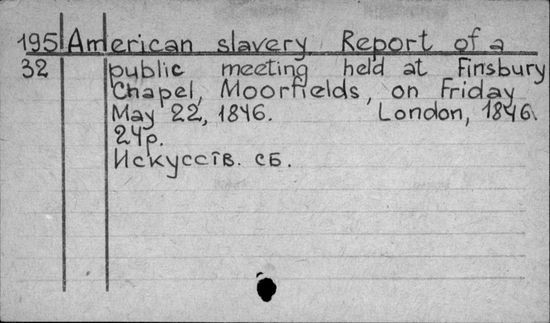 195 American slavery Report of a
32 public meeting held at Finsbury
Chapel, Moorfields, on Friday
May 22, 1846. London, 1846.
24p.
Искусств. сб.